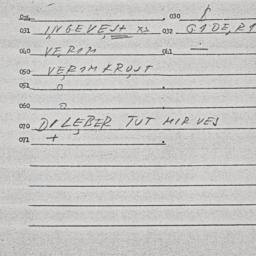 030
031 INGEVEJT XJ 032 GIDE, RT
040 VERIM 041 ÷
050 VERIMKROJT
052 0 .
060 0
070 DI LEBER TUT MIR VEJ
072 + .